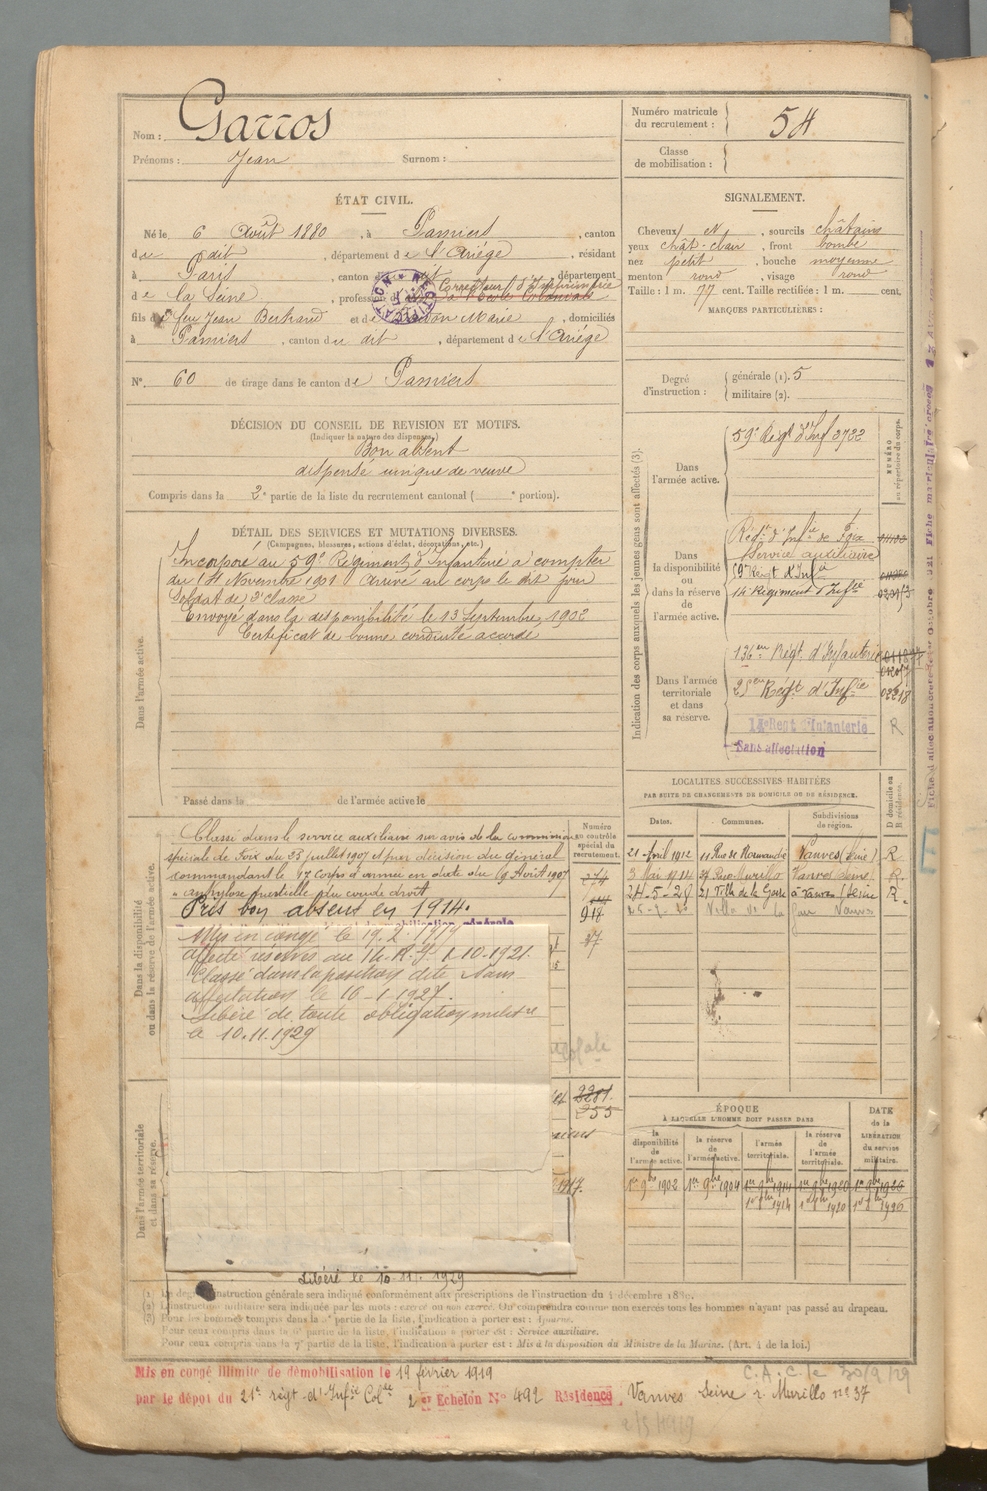 Nom : Garros
Prénoms : Jean Surnom :
Numéro matricule du recrutement : 54
Classe de mobilisation :
ÉTAT CIVIL.
Né le 6 Août 1880, à Pamiers, canton
du dit, département de l'Ariège, résidant
à Paris, canton département
de la Seine, profession Correcteur d'Imprimerie
à l'Ecole Coloniale
fils de feu Jean Bertrand et de Marie, domiciliés
à Pamiers, canton du dit, département de l'Ariège
N° 60 de tirage dans le canton de Pamiers
SIGNALEMENT.
Cheveux N, sourcils châtains
yeux chât-clair, front bombé
nez petit, bouche moyenne
menton rond, visage rond
Taille : 1 m. 77 cent. Taille rectifiée : 1 m. cent.
MARQUES PARTICULIÈRES :
Degré d'instruction : générale (1). 5
militaire (2).
DÉCISION DU CONSEIL DE REVISION ET MOTIFS.
(Indiquer la nature des dispenses.)
Bon absent
dispensé unique de veuve
Compris dans la 2e partie de la liste du recrutement cantonal ( e portion).
DÉTAIL DES SERVICES ET MUTATIONS DIVERSES.
(Campagnes, blessures, actions d'éclat, décorations, etc.)
Dans l'armée active.
Incorporé au 59e Régiment d'Infanterie à compter
du 14 Novembre 1901 arrivé au corps le dit jour
Soldat de 2e classe
Envoyé dans la disponibilité le 13 Septembre 1902
Certificat de bonne conduite accordé
Passé dans la de l'armée active le
Indication des corps auxquels les jeunes gens sont affectés (3).
NUMÉRO au répertoire du corps.
Dans l'armée active.
59e Régt d'Inf 3722
Dans la disponibilité ou dans la réserve de l'armée active.
Régt d'Infie de Foix
Service auxiliaire
59e Régt d'Infie
14e Régiment d'Infie
Dans l'armée territoriale et dans sa réserve.
136em Régt d'Infanterie
25em Régt d'Infie
14e Regt d'Infanterie R
Sans affectation
LOCALITÉS SUCCESSIVES HABITÉES
PAR SUITE DE CHANGEMENTS DE DOMICILE OU DE RÉSIDENCE.
Dates. Communes. Subdivisions de région. D domicile ou R résidence.
21 Avril 1912 11 Rue de Normandie Vanves (Seine) R
3 Mai 1914 37 Rue Murillo Vanves Seine R.
24-5-28 21 Villa de la Gare à Vanves (Seine R.
Villa de la Gare Vanves
Dans la disponibilité ou dans la réserve de l'armée active.
Numéro au contrôle spécial du recrutement.
Classé dans le service auxiliaire sur avis de la commission
spéciale de Foix du 23 juillet 1907 et par décision du général
commandant le 17 Corps d'armée en date du 9 Août 1907
ankylose partielle du coude droit
Pris bon absent en 1914.
274
918
Mis en congé le 19.2.1919
affecté réserves au 14. R.I. 1.10.1921.
Classé dans la position dite Sans
affectation le 16-1-1927.
Libéré de toute obligation militre
le 10.11.1929
Dans l'armée territoriale et dans sa réserve.
2281
255
Libéré le 10-11-1929
ÉPOQUE
À LAQUELLE L'HOMME DOIT PASSER DANS
la disponibilité de l'armée active.
la réserve de l'armée active.
l'armée territoriale.
la réserve de l'armée territoriale.
DATE de la LIBÉRATION du service militaire.
1er 9bre 1902 1er 9bre 1904 1er 9bre 1914 1er 9bre 1920 1er 9bre 1926
(1) Le degré d'instruction générale sera indiqué conformément aux prescriptions de l'instruction du 4 décembre 1889.
(2) L'instruction militaire sera indiquée par les mots : exercé ou non exercé. On comprendra comme non exercés tous les hommes n'ayant pas passé au drapeau.
(3) Pour les hommes compris dans la partie de la liste, l'indication à porter est : Ajourné.
Pour ceux compris dans la partie de la liste, l'indication à porter est : Service auxiliaire.
Pour ceux compris dans la partie de la liste, l'indication à porter est : Mis à la disposition du Ministre de la Marine. (Art. 4 de la loi.)
Mis en congé illimité de démobilisation le 19 février 1919
par le dépôt du 21e régt d'Infie Colle 2 Echelon N° 492 Résidence Vanves Seine r. Murillo n° 37
C.A.C. le 30/9/29